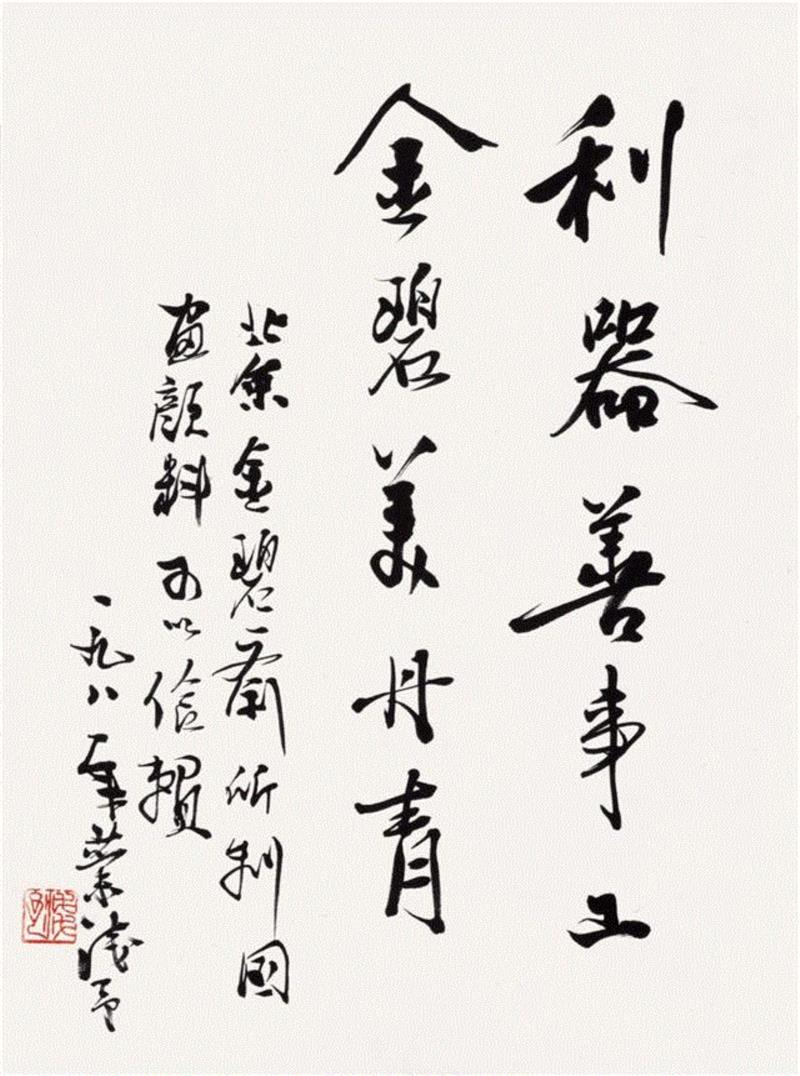 利器善事工
金碧美丹青
北京金碧斋所制国
画颜料可以信赖
一九八一年葉浅予